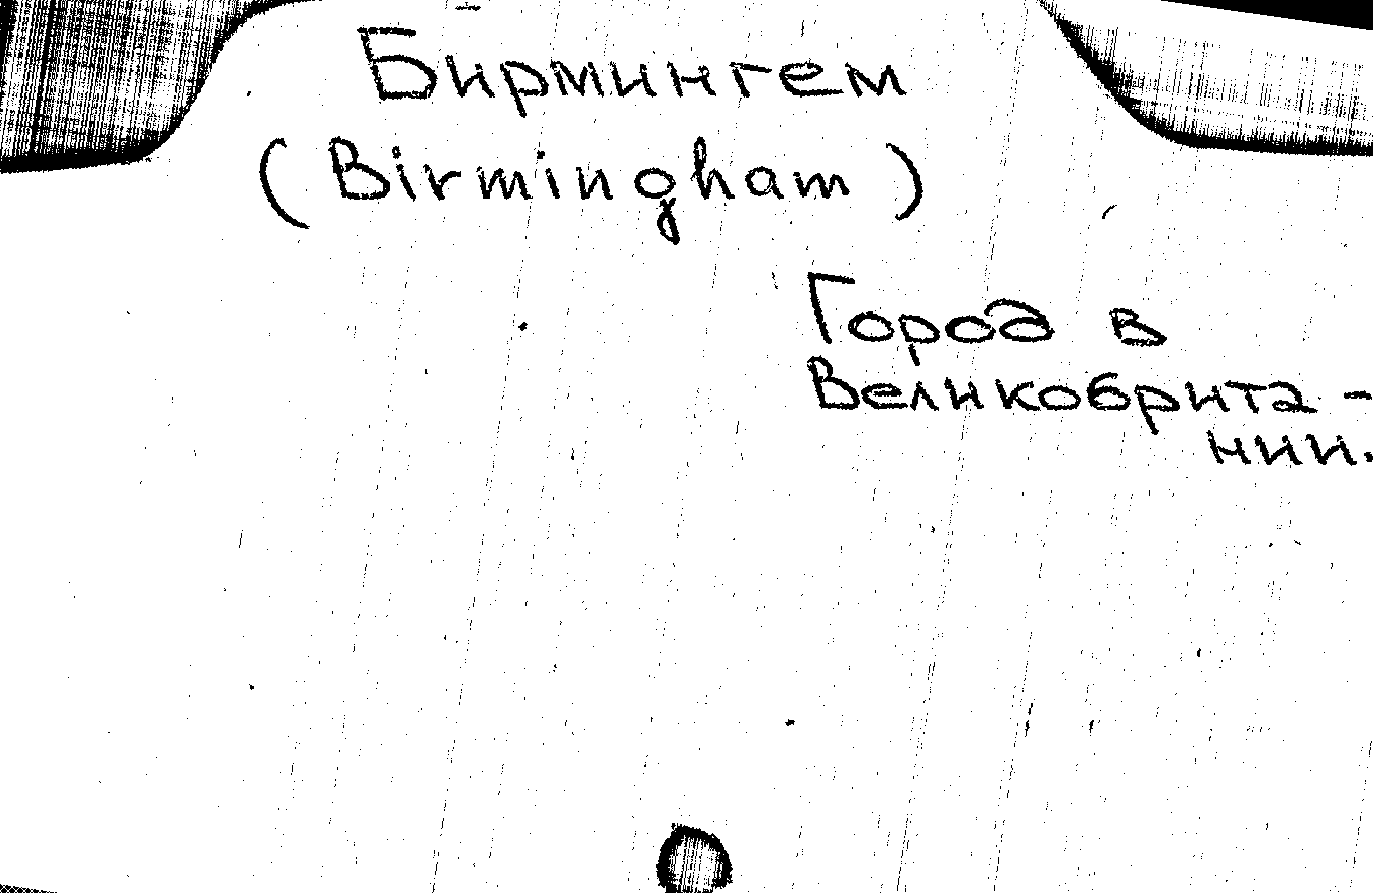 Бирмингем
(Birmingham)
Город в
Великобрита-
нии.